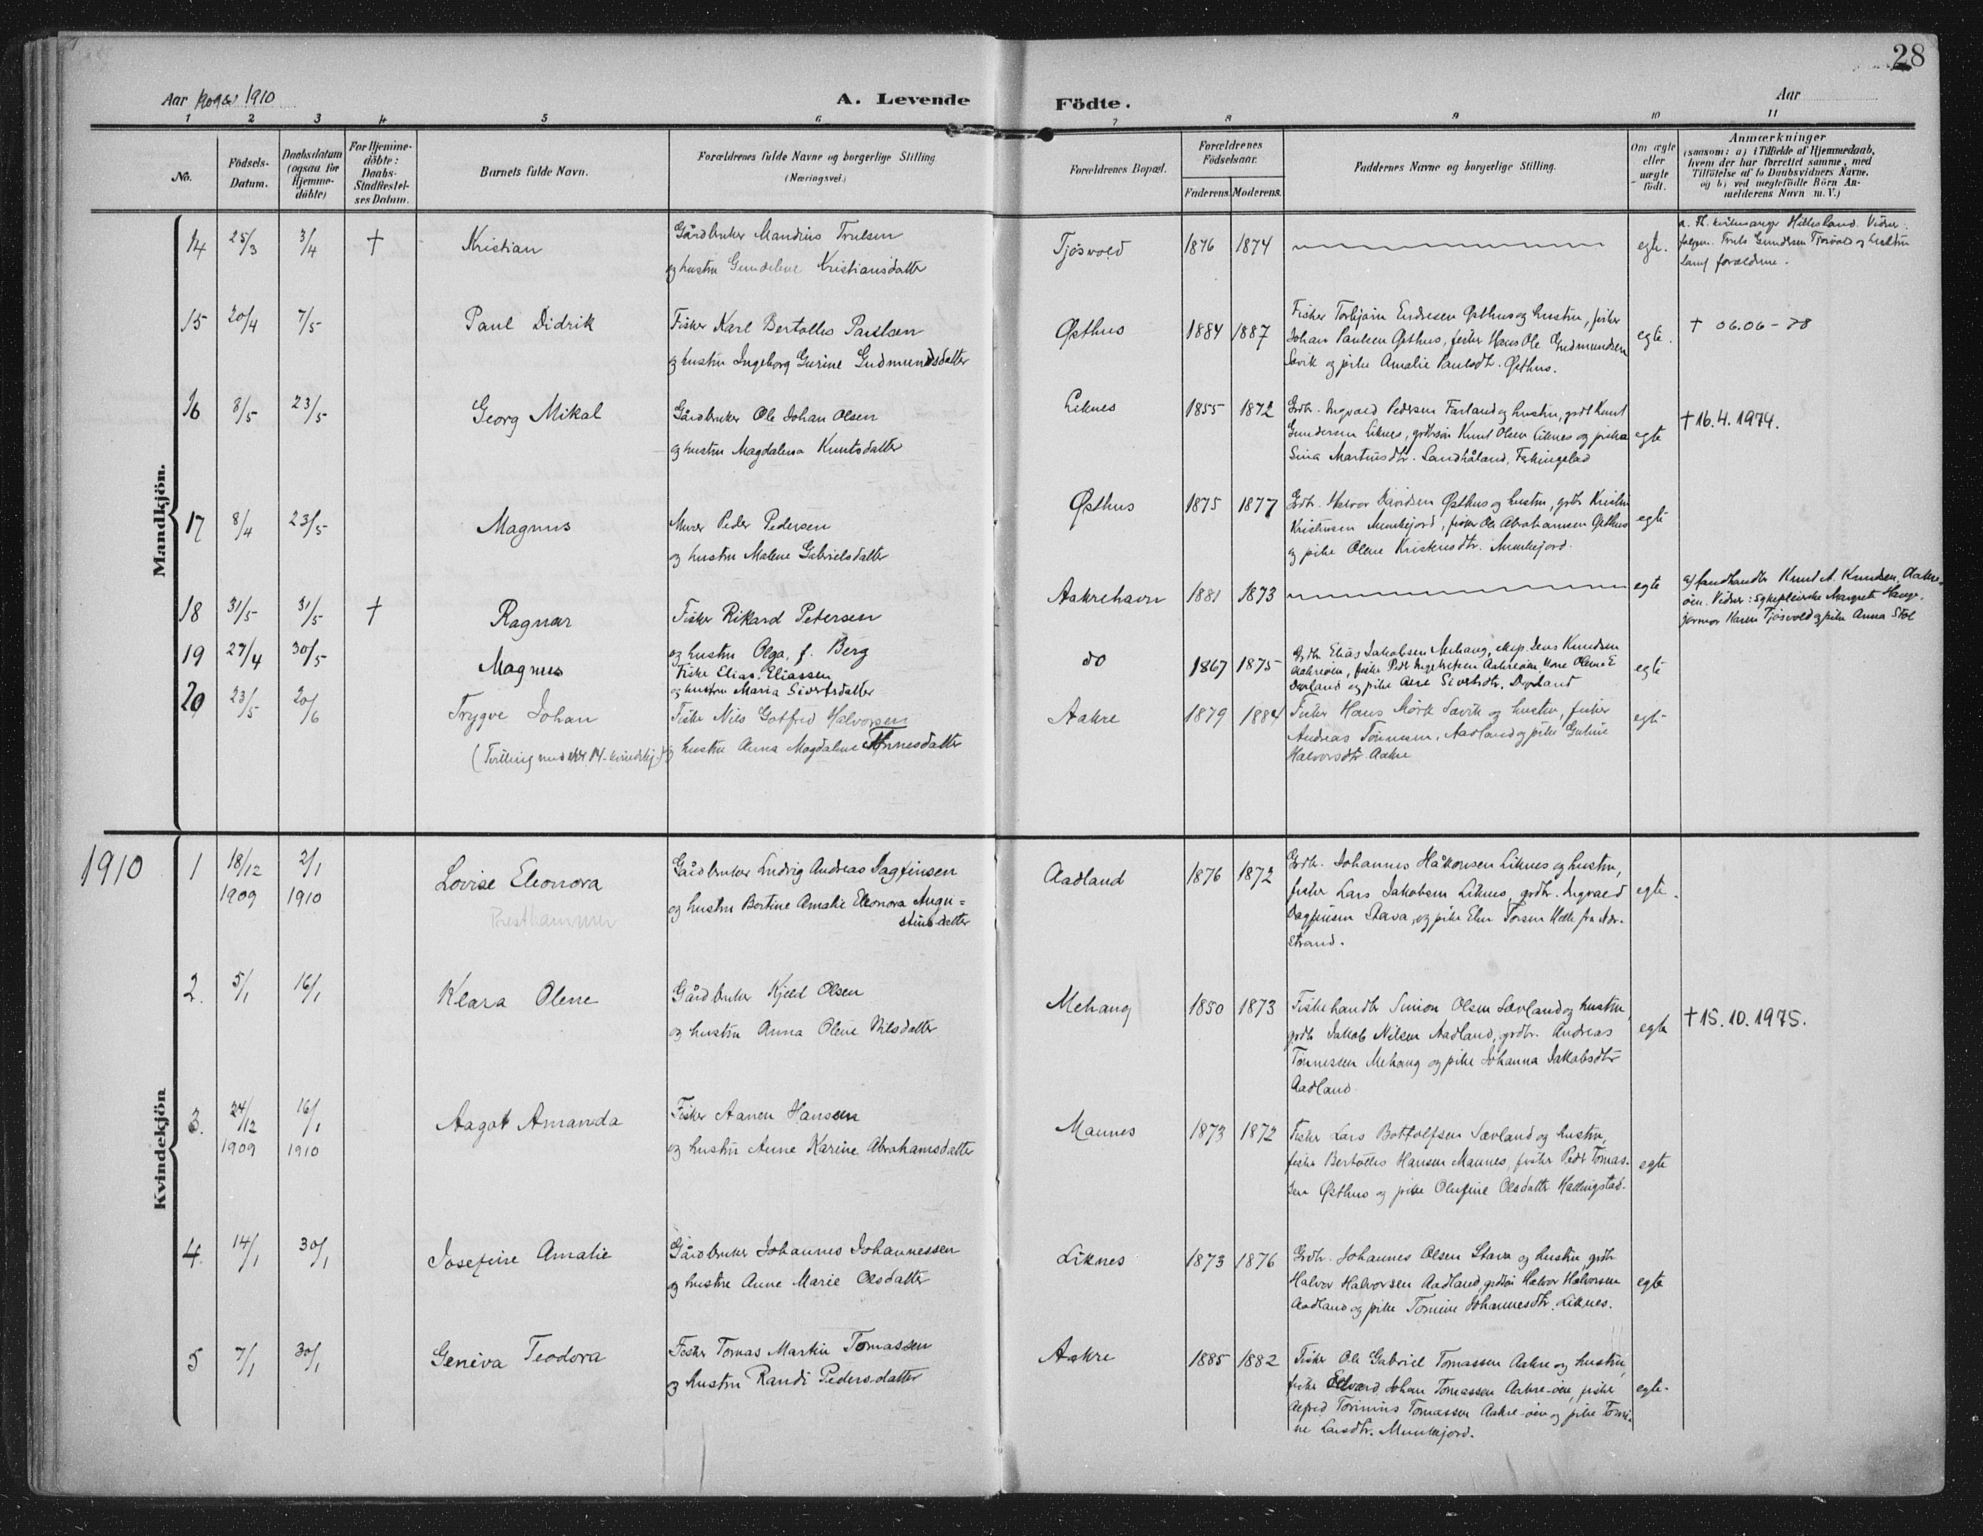 28
Aar 1909 & 1910
A. Levende
Födte.
Aar
1 2 3 4 5 6 7 8 9 10 11
No.
Födsels-
Datum.
Daabsdatum
(ogsaa for
Hjemme-
döbte)
For Hjemme-
döbte:
Daabs-
Stadfestel-
ses Datum.
Barnets fulde Navn.
Forældrenes fulde Navne og borgerlige Stilling
(Næringsvei.)
Forældrenes Bopæl.
Forældrenes
Födselsaar.
Faderens. Moderens.
Faddernes Navne og borgerlige Stilling.
Om ægte
eller
uægte
födt.
Anmærkninger
(saasom: a) i Tilfælde af Hjemmedaab,
hvem der har forrettet samme, med
Tilföielse af to Daabsvidners Navne,
og b) ved uægtefödte Börn An-
melderens Navn m. V.)
Mandkjön.
14 25/3 3/4 † Kristian
Gårdbruker Mandius Trulsen
og hustru Gundelene Kristiansdatter
Tjøsvold 1876 1874 egte.
a. Th. kirkesanger Hillesland. Vidner:
Truls Gundersen Tjøsvold og hustru
samt forældrene.
15 20/4 7/5 Paul Didrik
Fisker Karl Bertolles Paulsen
og hustru Ingeborg Gurine Gudmundsdatter
Østhus 1884 1887
Fisker Torbjørn Endresen Østhus og hustru, fisker
Johan Paulsen Østhus, fisker Hans Ole Gudmundsen
Sævik og pike Amalie Paulsdtr. Østhus.
egte.
† 06.06-78
16 8/5 23/5 Georg Mikal
Gårdbruker Ole Johan Olsen
og hustru Magdalena Knutsdatter
Liknes 1855 1872
Grdbr. Ingvald Pedersen Farland og hustru, grdb Knut
Gundersen Liknes, grdbrsøn Knut Olsen Liknes og pike
Sina Martinsdtr. Sandhåland, Ferkingstad
egte
† 16.4.1974.
17 8/4 23/5 Magnus
Murer Peder Pedersen
og hustru Malene Gabrielsdatter
Østhus 1875 1877
Grdb. Halvor Davidsen Østhus og hustru, grdb Kristen
Kristensen Munkejord, fisker Ole Abrahamsen Østhus
og pike Olene Kristensdtr. Munkejord.
egte
18 31/5 31/5 † Ragnar
Fisker Rikard Petersen
og hustru Olga, f. Berg
Aakrehavn 1881 1873 egte
a) landhandler Knud A. Knudsen, Aakre-
øen. Vidner: Sykepleierske Margrete Hauge,
jormor Karen Tjøsvold og pike Anna Stol
19 27/4 30/5 Magnus
Fisker Elias Eliassen
og hustru Maria Sivertsdatter
do 1867 1875
Grdb Elias Jakobsen Mehang, eksp. Jens Knudsen
Aakreøen, fisker Pedr Ingebretsen Aakreøen kone Olene E
Dørland og pike Sivertsdtr. Dørland
egte
20 23/5 20/6 Trygve Johan
(Tvilling med nr 14 - kvindekj.)
Fisker Nils Gotfred Halvorsen
og hustru Anna Magdalene Tønnesdatter
Aakre 1879 1884
Fisker Hans Mørk Sævik og hustru, fisker
Andreas Tønnesen, Aadland og pike Guline
Halvorsdtr Aakre
egte
Kvindekjön
1910
1 18/12 1909 2/1 1910 Lovise Eleonora
Presthammer
Gårdbruker Ludvig Andreas Dagfinsen
og hustru Bertine Amalie Eleonora Augu-
stinsdatter
Aadland 1876 1872
Grdb. Johannes Håkonsen Liknes og hustru,
fisker Lars Jakobsen Liknes, grdbr. Ingvald
Dagfinsen Stava, og pike Elen Torsen Helle fra Ndr
strand.
egte.
2. 5/1 16/1 Klara Olene
Gårdbruker Kjeld Olsen
og hustru Anna Olene Nilsdatter
Mehang 1850 1873
Fiskehandler Simon Olsen Sævland og hustru,
grdb Jakob Nilsen Aadland, grdbr. Andreas
Tønnessen Mehang og pike Johanna Jakobsdtr
Aadland.
egte
† 15.10.1975.
3. 24/12 1909 16/1 1910 Aagot Amanda
Fisker Aanen Hanssen
og hustru Anne Karine Abrahamsdatter
Mannes 1873 1872
Fisker Lars Botfolfsen Sævland og hustru,
fisker Bertolles Hansen Mannes, fisker Pedr Tomas-
sen Østhus og pike Olufine Olsdatter Hallingstad.
egte
4. 14/1 30/1 Josefine Amalie
Gårdbruker Johannes Johannessen
og hustru Anne Marie Olsdatter
Liknes 1873 1876
Grdb. Johannes Olsen Stava og hustru, grdb
Halvor Halvorsen Aadland, grdbsøn Halvor Halvorsen
Aadland og pike Tomine Johannesdtr. Liknes.
egte
5 7/1 30/1 Geneva Teodora
Fisker Tomas Martin Tomassen
og hustru Randi Pedersdatter
Aakre 1885 1882
Fisker Ole Gabriel Tomassen Aakre og hustru,
fisker Edvard Johan Tomassen Aakre-øen, fisker
Alfred Torinius Tomassen Aakre-øen og pike Tomi-
ne Larsdtr. Munkejord.
egte.